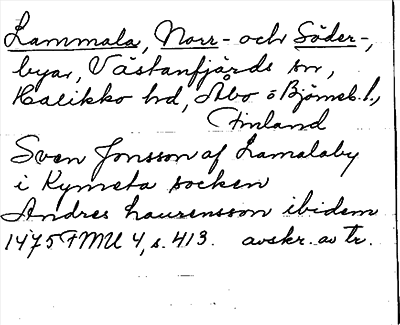 Lammala, Norr- och Söder-,
byar, Västanfjärds sn,
Halikko hd, Åbo o Björneb. l.,
Finland
Sven Jonsson af Lamalaby
i Kymeta socken
Andres Laurensson ibidem
1475 FMU 4, s. 413. avskr. av tr.